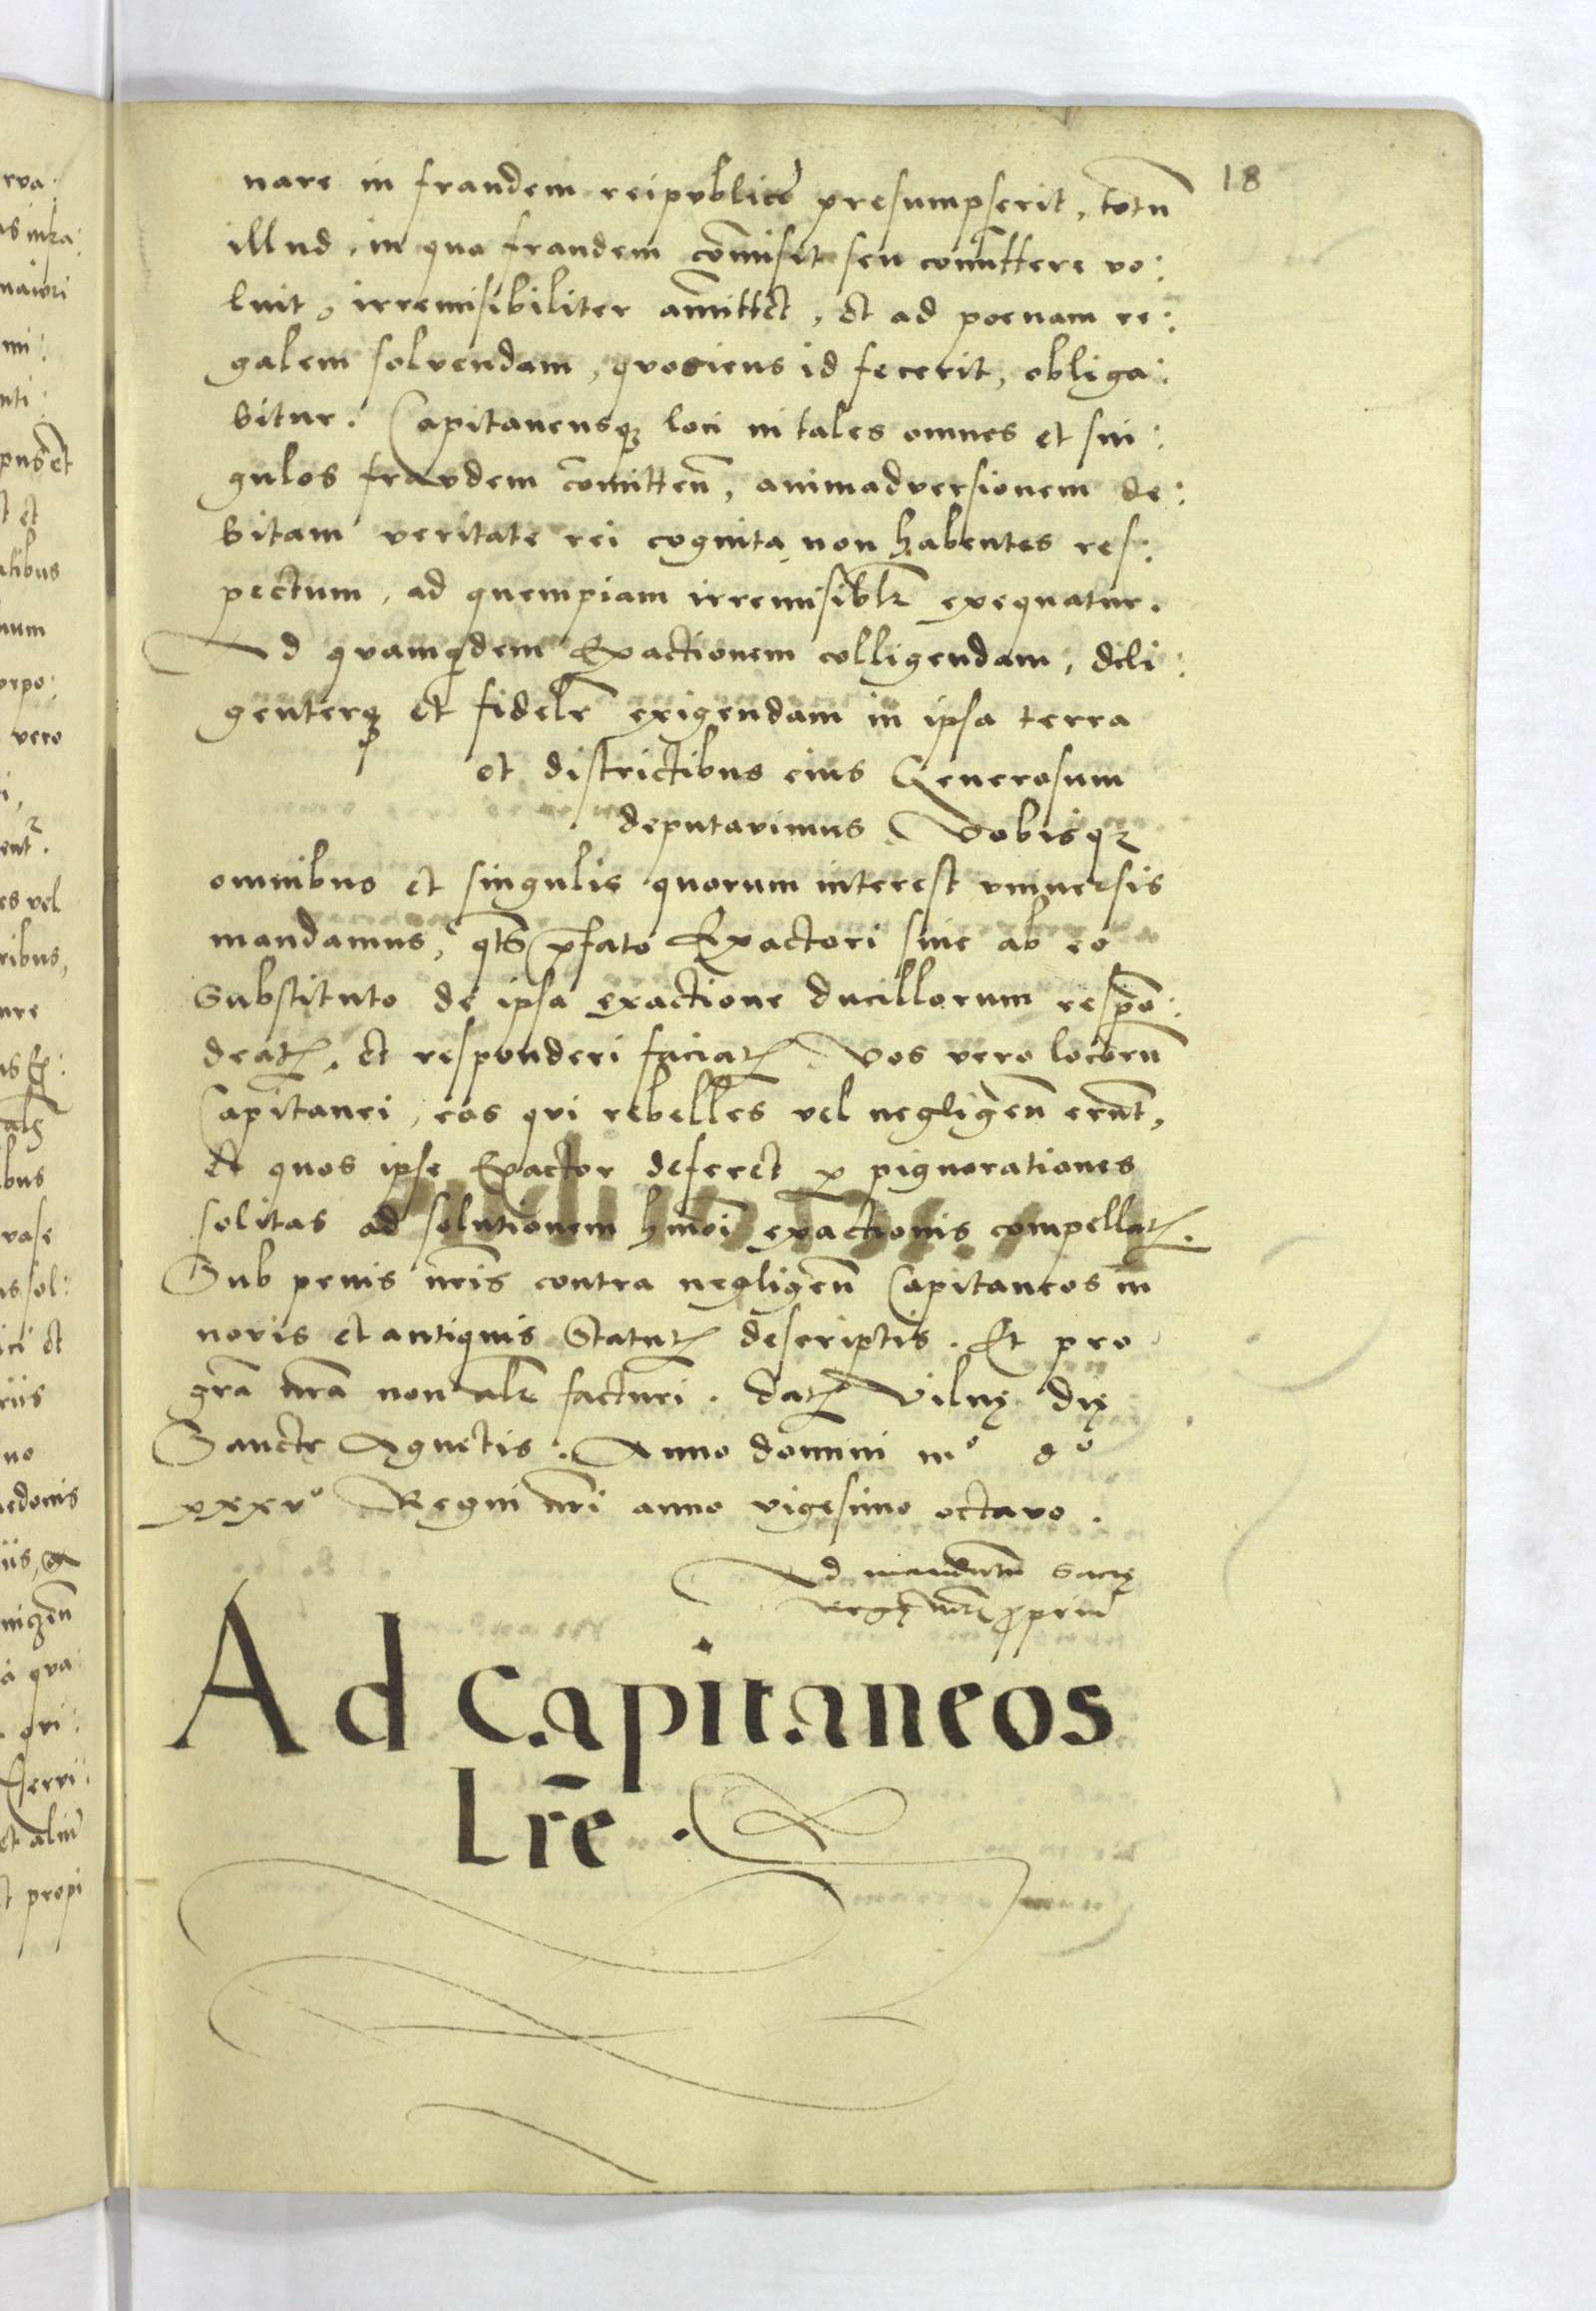 18
nare in fraudem reipublice presumpserit, totū
illud, in quo fraudem cōmisit seu comittere vo:
luit, irremisibiliter amittet, et ad poenam re:
galem solvendam, quociens id fecerit, obliga:
bitur. Capitaneusqȝ loci in tales omnes et sin:
gulos fravdem cōmitteñ, animadversionem de:
bitam veritate rei cognita, non habentes res:
pectum, ad quempiam irremisiblr exequatur.
Ad quamqdem Exactionem colligendam, dili:
genterqȝ et fidelr exigendam in ipsa terra
et districtibus eius Generosum
deputavimus. Vobisqȝ
omnibus et singulis quorum interest universis
mandamus, qts p̄fato Exactori sive ab eo
Substituto de ipsa exactione ducillorum respō:
deatꝭ, et responderi faciatꝭ. Vos vero locorū
Capitanei, eos qvi rebelles vel negligeñ erunt,
et quos ipse Exactor deferet p pignorationes
solitas ad solutionem hmōi exactionis compellatꝭ.
Sub penis nr̄is contra negligeñ Capitaneos in
novis et antiquis Statutꝭ descriptis. Et pro
grā nrā non alr facturi. Datꝭ Vilnę dię
Sancte Agnetis. Anno domini mº dº
xxxvº Regni nr̄i anno vigesimo octavo.
Ad mandatū Sacrę
Ad capitaneos
Lr̄e.